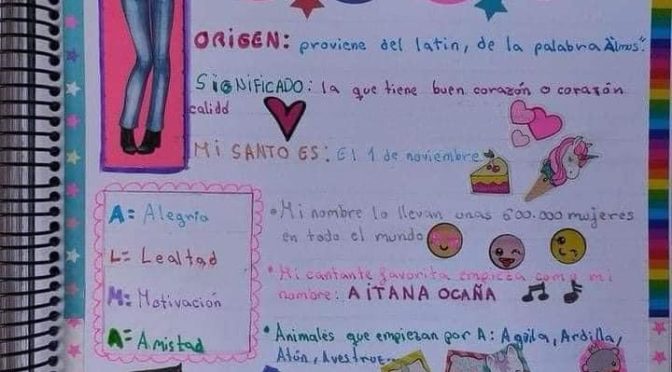 ORIGEN: proviene del latin, de la palabra "Almus".
SIGNIFICADO: la que tiene buen corazón o corazón
calidd
Mi SANTO ES: El 1 de noviembre
A= Alegria
L= Lealtad
M= Motivación
A= Amistad
• Mi nombre lo llevan unas 600.000 mujeres
en todo el mundo
• Mi cantante favorita empieza como mi
nombre: AiTANA OCAÑA
• Animales que empiezan por A: Aguila, Ardilla,
Atún, Avestruz